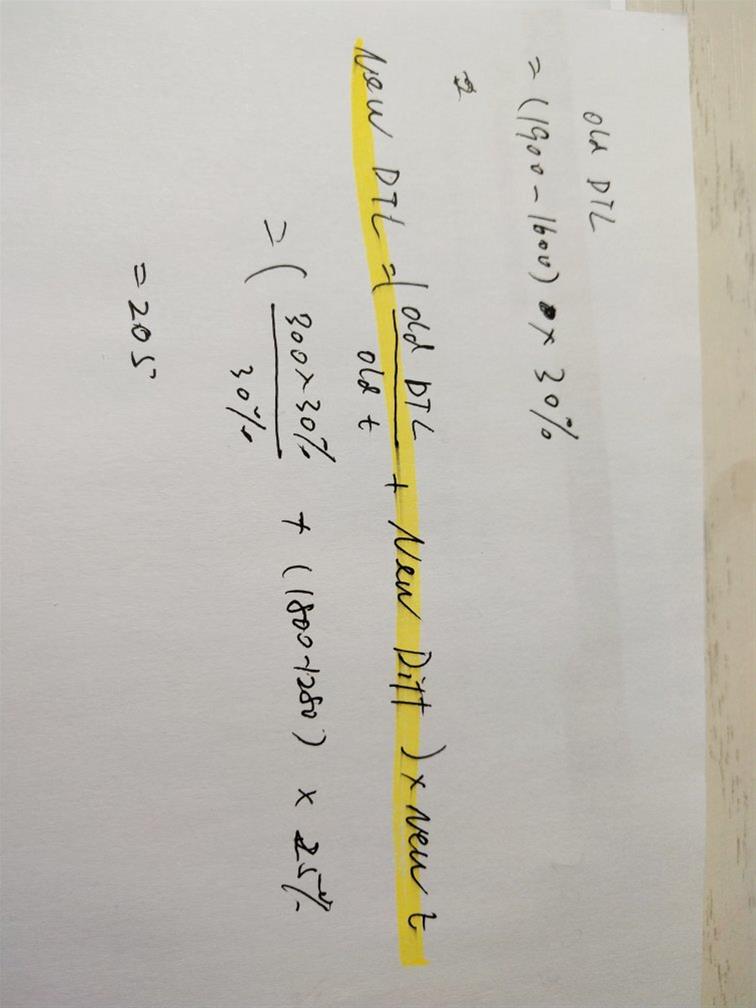 old DTL
= (1900-1600) × 30%
New DTL = (old DTL / old t + New Diff) × New t
= (300×30% / 30% + (1800-1280) × 25%
= 205